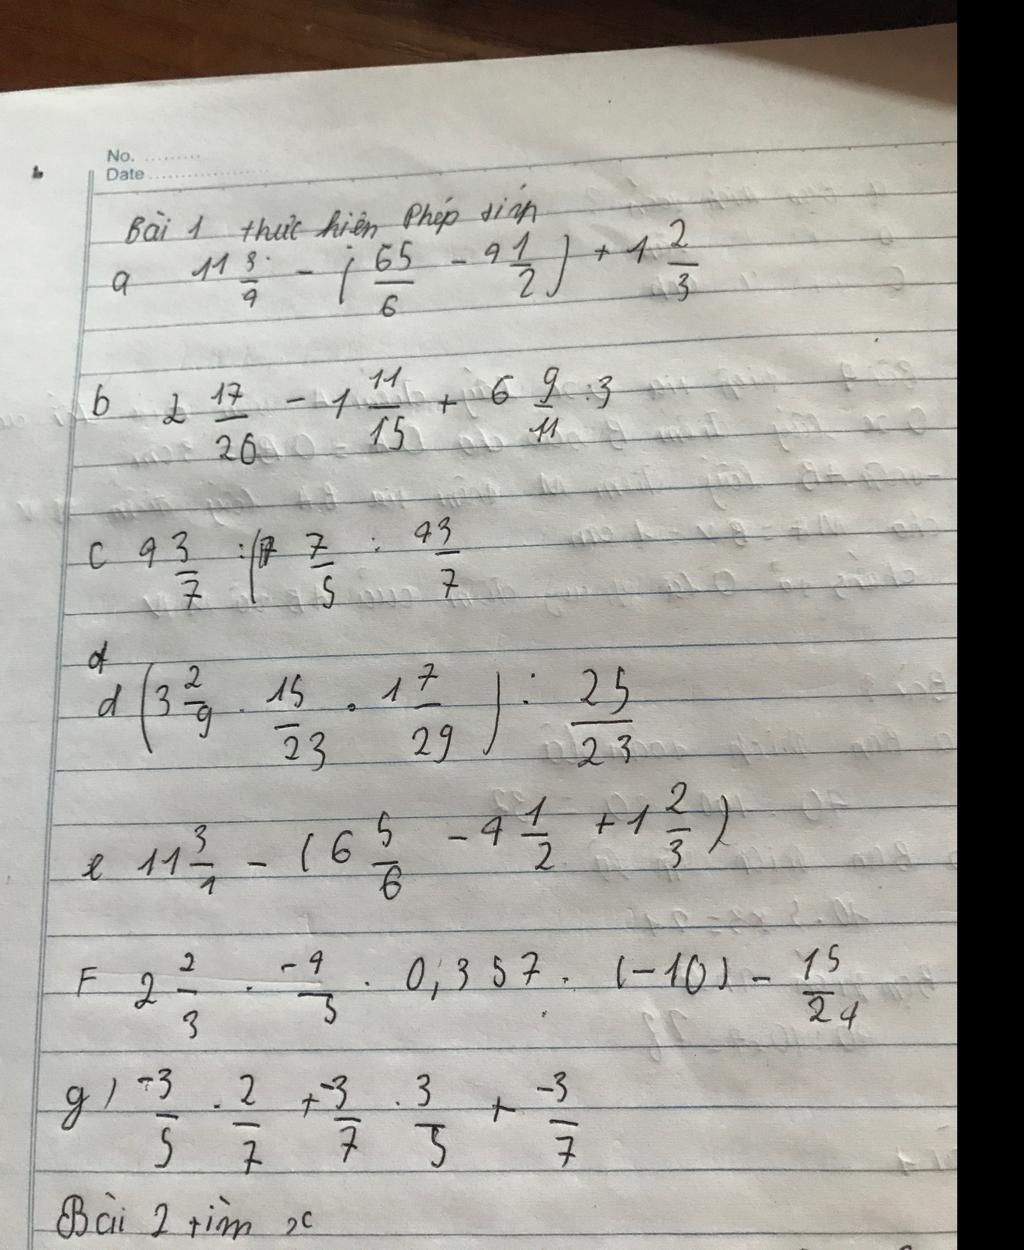 No. .........
Date ..................
Bài 1 thực hiện Phép tính
a 11 3/4 - ( 65/6 - 4 1/2 ) + 1 2/3
b 2 17/20 - 1 11/15 + 6 9/11 : 3
c 4 3/7 : ( 7/5 : 43/7
d ( 3 2/9 . 15/23 . 1 7/29 ) : 25/23
e 11 3/4 - ( 6 5/6 - 4 1/2 + 1 2/3 )
F 2 2/3 . -4/5 . 0,357 . (-10) - 15/24
g ) -3/5 . 2/7 + -3/7 . 3/5 + -3/7
Bài 2 tìm x